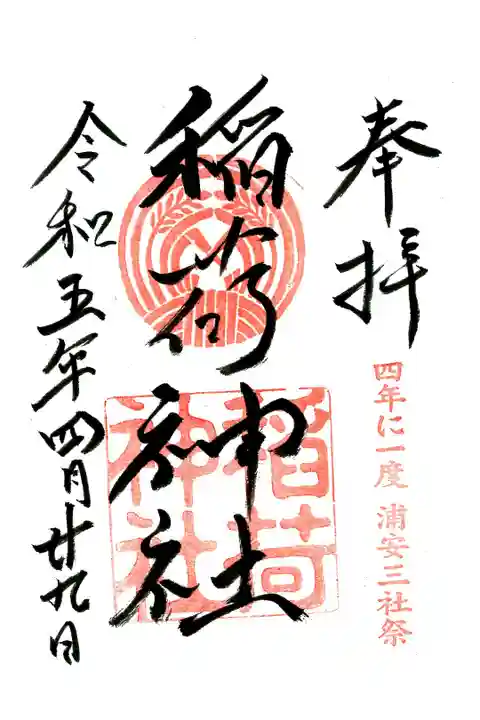 奉拝
四年に一度 浦安三社祭
稲荷神社
稲荷神社
令和五年四月廿九日